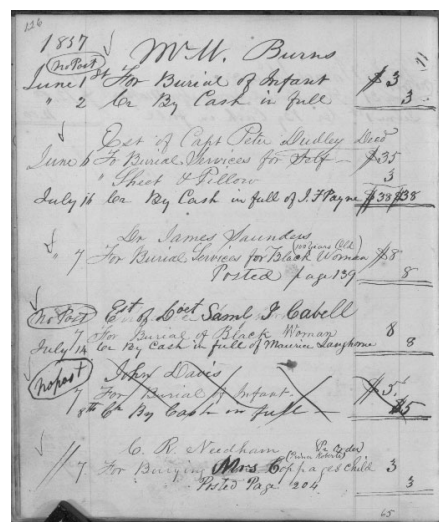 126
1857
11
no Post
Mr M. Burns
June 1st For Burial of Infant $3
" 2 Cr By Cash in full 3
Est of Capt Peter Dudley Decd
June 6 To Burial Services for Self — $35
" Sheet & Pillow 3
July 16 Cr By Cash in full of J F Payne $38 $38
Dr James Saunders
(100 Years Old)
" 7 For Burial Services for Black Woman $8
Posted page 139 8
no Post Est of Saml J. Cabell
7 For Burial of Black Woman 8
July 14 Cr By Cash in full of Maurice Langhorne 8
no post
John Davis
7 For Burial of Infant $5
8th Cr By Cash in full — $5
C. R. Needham Pr Order
" 7 For Burying Mrs Coppages Child 3
Posted Page 204 3
65